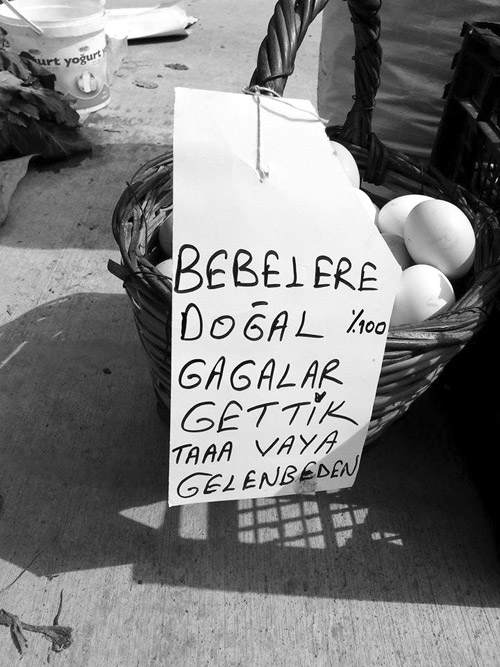 urt yoğurt
BEBELERE
DOĞAL %100
GAGALAR
GETTİK
TAAA VAYA
GELENBEDEN